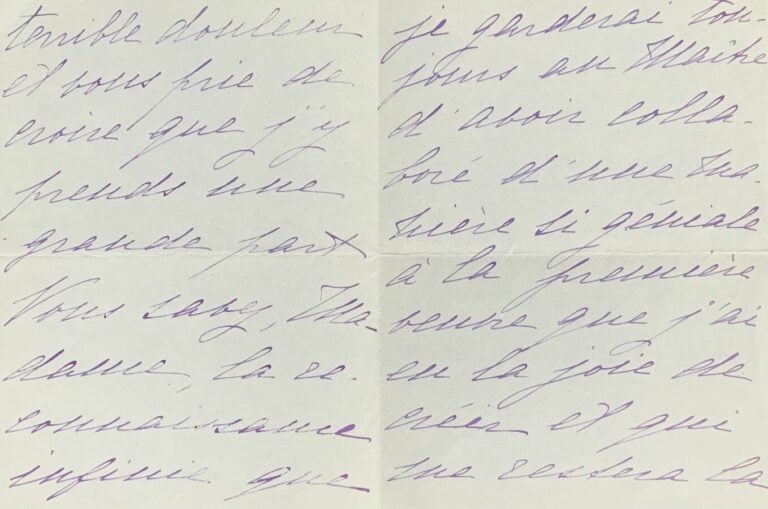 terrible douleur
et vous prie de
croire que j'y
prends une
grande part
Vous savez, Ma-
dame, la re-
connaissance
infinie que
je garderai tou-
jours au Maître
d'avoir colla-
boré d'une ma-
nière si géniale
à la première
oeuvre que j'ai
eu la joie de
créer et qui
me restera la